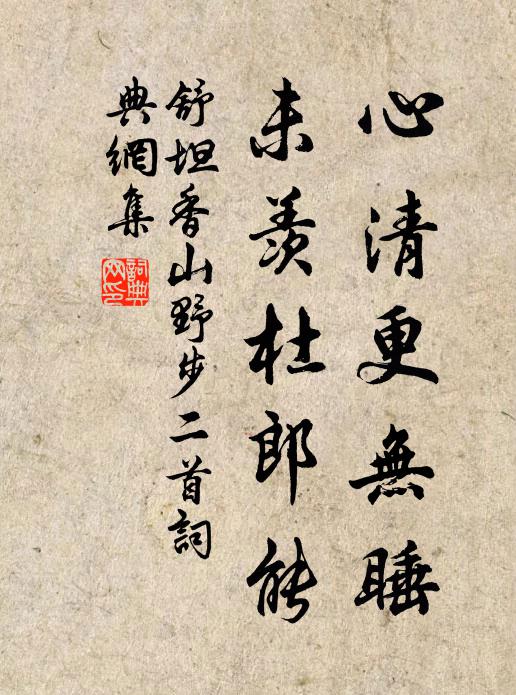 心清更無睡
未羨杜郎能
舒坦香山野步二首詞
典網集
詞典网印